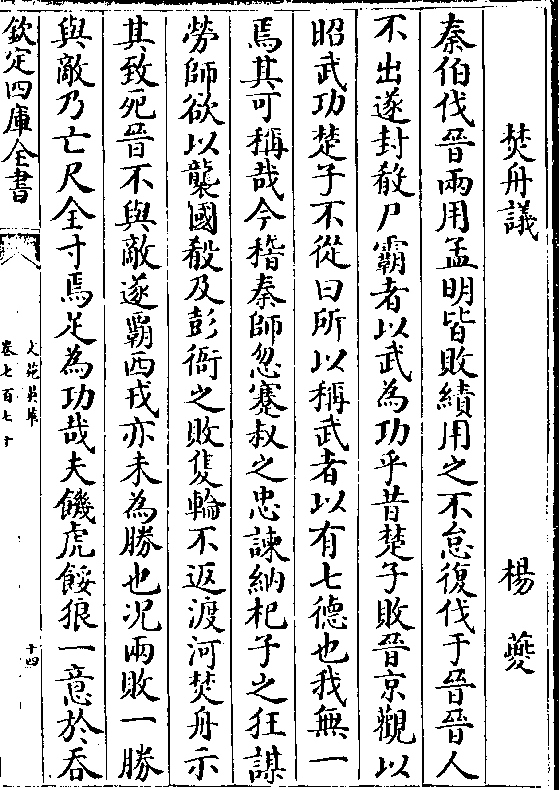 焚舟議　楊夔
秦伯伐晉兩用孟明皆敗績用之不怠復伐于晉晉人
不出遂封殽尸霸者以武為功乎昔楚子敗晉京觀以
昭武功楚子不從曰所以稱武者以有七德也我無一
焉其可稱哉今稽秦師忽蹇叔之忠諫納杞子之狂謀
勞師欲以襲國殽及彭衙之敗隻輪不返渡河焚舟示
其致死晉不與敵遂霸西戎亦未為勝也况兩敗一勝
與敵乃亡尺全寸焉足為功哉夫饑虎餒狼一意於吞
欽定四庫全書
文苑英華
卷七百七十
十四